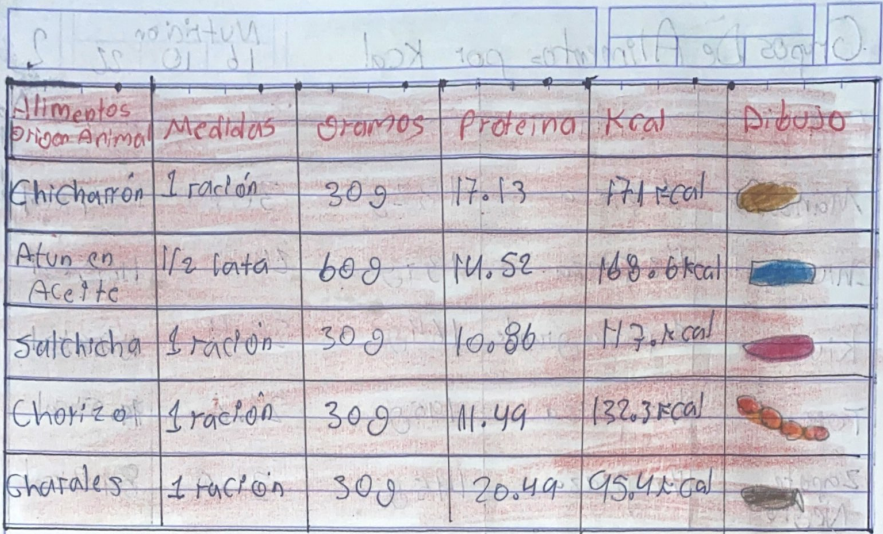 Alimentos
Origen Animal Medidas Gramos Proteina Kcal Dibujo
Chicharrón 1 ración 30 g 17.13 171 kcal
Atun en
Aceite 1/2 lata 60 g 14.52 168.6 kcal
Salchicha 1 ración 30 g 10.86 117. kcal
Chorizo 1 ración 30 g 11.49 132.3 kcal
Charales 1 ración 30 g 20.49 95.4 kcal